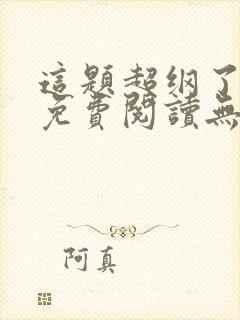 這題超纲了
免費閱讀無
阿真